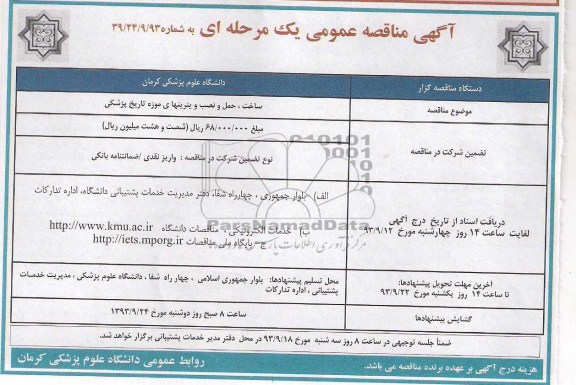 آگهی مناقصه عمومی یک مرحله ای به شماره ۳۹/۲۴/۹/۹۳
دستگاه مناقصه گزار
دانشگاه علوم پزشکی کرمان
موضوع مناقصه
ساخت ، حمل و نصب و یترینها ی موزه تاریخ پزشکی
تضمین شرکت در مناقصه
مبلغ ۶۸/۰۰۰/۰۰۰ ریال (شصت و هشت میلیون ریال)
نوع تضمین شرکت در مناقصه : واریز نقدی /ضمانتنامه بانکی
دریافت اسناد از تاریخ درج آگهی
لغایت ساعت ۱۴ روز چهارشنبه مورخ ۹۳/۹/۱۲
الف) بلوار جمهوری ، چهارراه شفا، دفتر مدیریت خدمات پشتیبانی دانشگاه، اداره تدارکات
ب) خدمات الکترونیکی ، مناقصات دانشگاه http://www.kmu.ac.ir
ج- پایگاه ملی مناقصات http://iets.mporg.ir
آخرین مهلت تحویل پیشنهادها:
تا ساعت ۱۴ روز یکشنبه مورخ ۹۳/۹/۲۲
محل تسلیم پیشنهادها: بلوار جمهوری اسلامی ، چهار راه شفا ، دانشگاه علوم پزشکی ، مدیریت خدمـات
پشتیبانی ، اداره تدارکات
گشایش پیشنهادها
ساعت ۸ صبح روز دوشنبه مورخ ۱۳۹۳/۹/۲۴
ضمناً جلسه توجیهی در ساعت ۸ روز سه شنبه مورخ ۹۳/۹/۱۸ در محل دفتر مدیر خدمات پشتیبانی برگزار خواهد شد.
هزینه درج آگهی بر عهده برنده مناقصه می باشد.
روابط عمومی دانشگاه علوم پزشکی کرمان
ParsNamadData